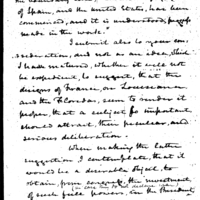 of Spain, and the United States, has been
commenced, and it is understood, progress
made in the work.
I submit also to your con-
sideration, and not as an idea, which
I had matured, whether it will not
be expedient, to suggest, that the
designs of France, on Louisiana
and the Floridas, seem to render it
proper, that a subject so important
should attract their peculiar, and
serious deliberation.
When making the latter
suggestion, I contemplate, that it
would be a desirable object, to
obtain, from Congress, the investment
of such full powers, in the President